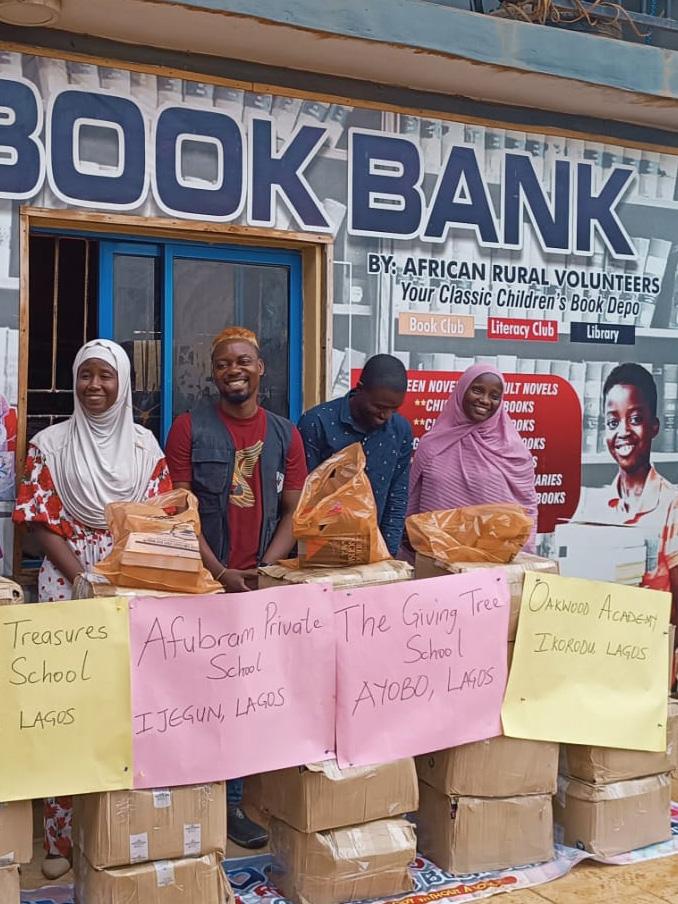 BOOK BANK
BY: AFRICAN RURAL VOLUNTEERS
Your Classic Children's Book Depo
Book Club
Literacy Club
Library
NOVELS
NOVELS
BOOKS
OOKS
OOKS
BOOKS
Treasures
School
LAGOS
Afubram Private
School
IJEGUN, LAGOS
The Giving Tree
School
AYOBO, LAGOS
OAKWOOD ACADEMY
IKORODU, LAGOS